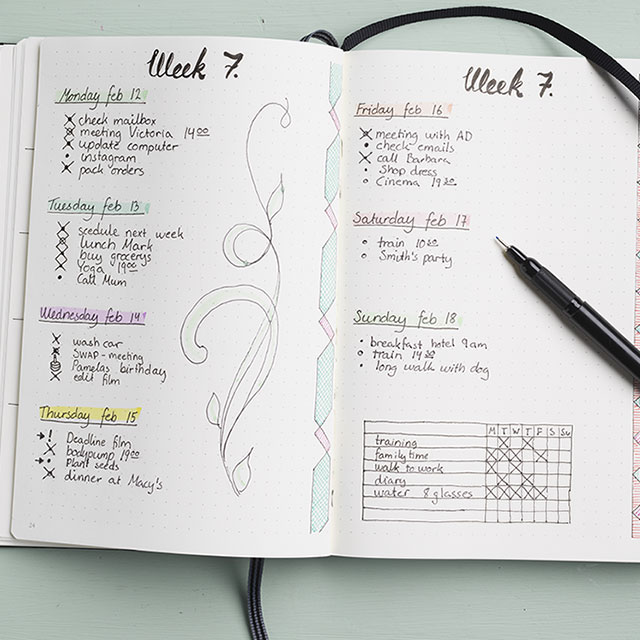 Week 7.
Monday feb 12
check mailbox
meeting Victoria 14:00
update computer
instagram
pack orders
Tuesday feb 13
scedule next week
lunch Mark
buy grocerys
Yoga 19:00
Call Mum
Wednesday feb 14
wash car
SWAP-meeting
Pamelas birthday
edit film
Thursday feb 15
! Deadline film
bodypump 19:00
Plant seeds
dinner at Macy's
24
Week 7.
Friday feb 16
meeting with AD
check emails
call Barbara
Shop dress
Cinema 19:30
Saturday feb 17
train
Smith's party
Sunday feb 18
breakfast hotel 9am
train
long walk with dog
M T W T F S Su
training
family time
walk to work
diary
water 8 glasses